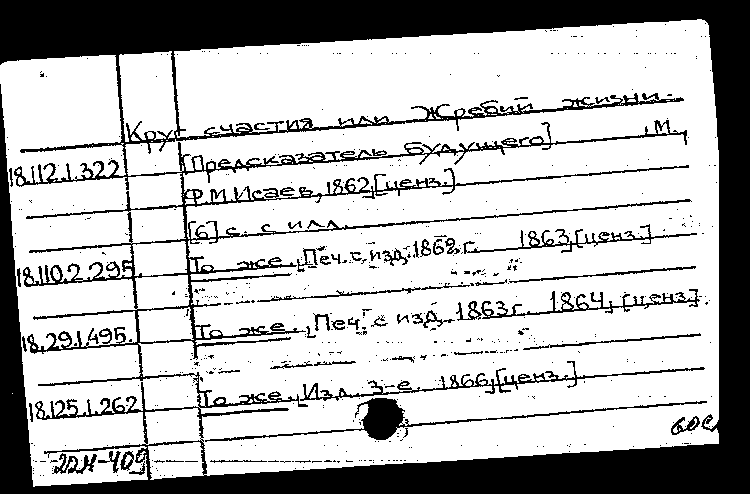 Круг счастия или Жребий жизни.
18.112.1.322 [Предсказатель будущего]. , М.,
Ф.М.Исаев, 1862,[ценз.]
[6] с. с илл.
18.110.2.295. То же. „Печ. с изд. 1862 г. 1863,[ценз.]
18.29.1.495. То же. „Печ. с изд. 1863 г. 1864, [ценз.]
18.125.1.262 То же. „Изд. 3-е. 1866,[ценз.]
22М-409